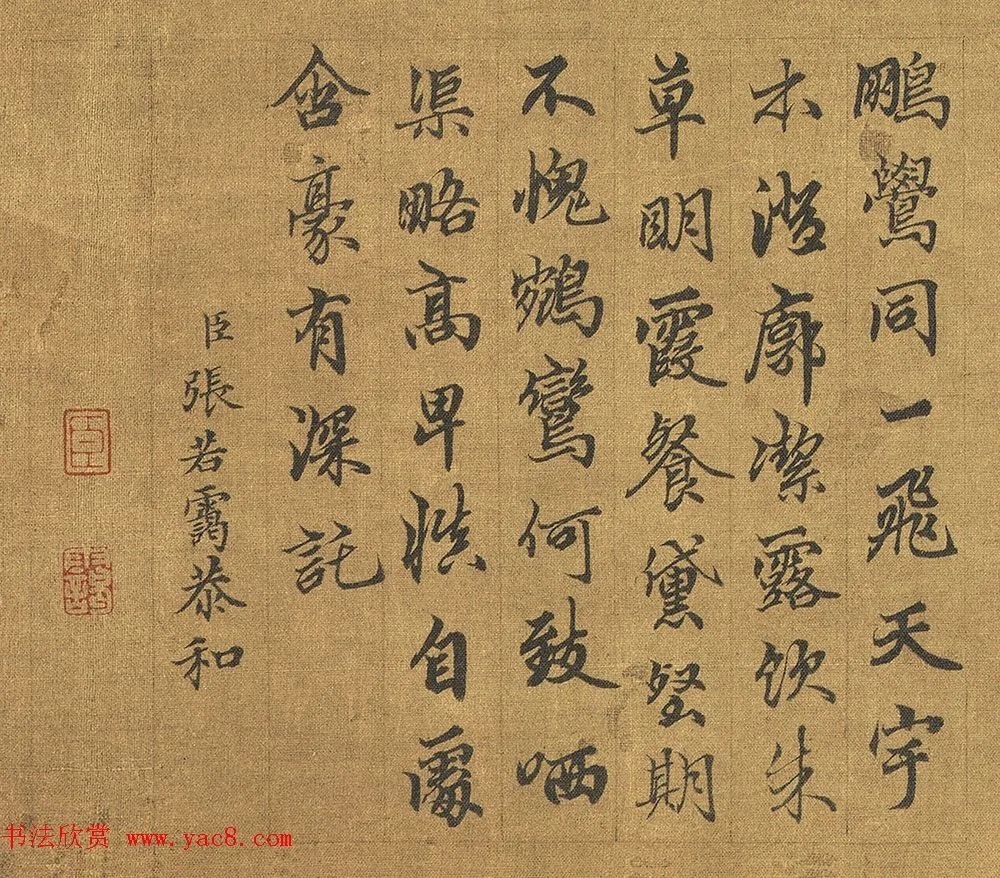 鵬鷽同一飛天宇
本澄廓潔露飲朱
草明霞餐黛壑期
不愧鵷鸞何致哂
渠略高卑慎自處
含豪有深託
臣張若靄恭和
臣
书法欣赏 www.yac8.com